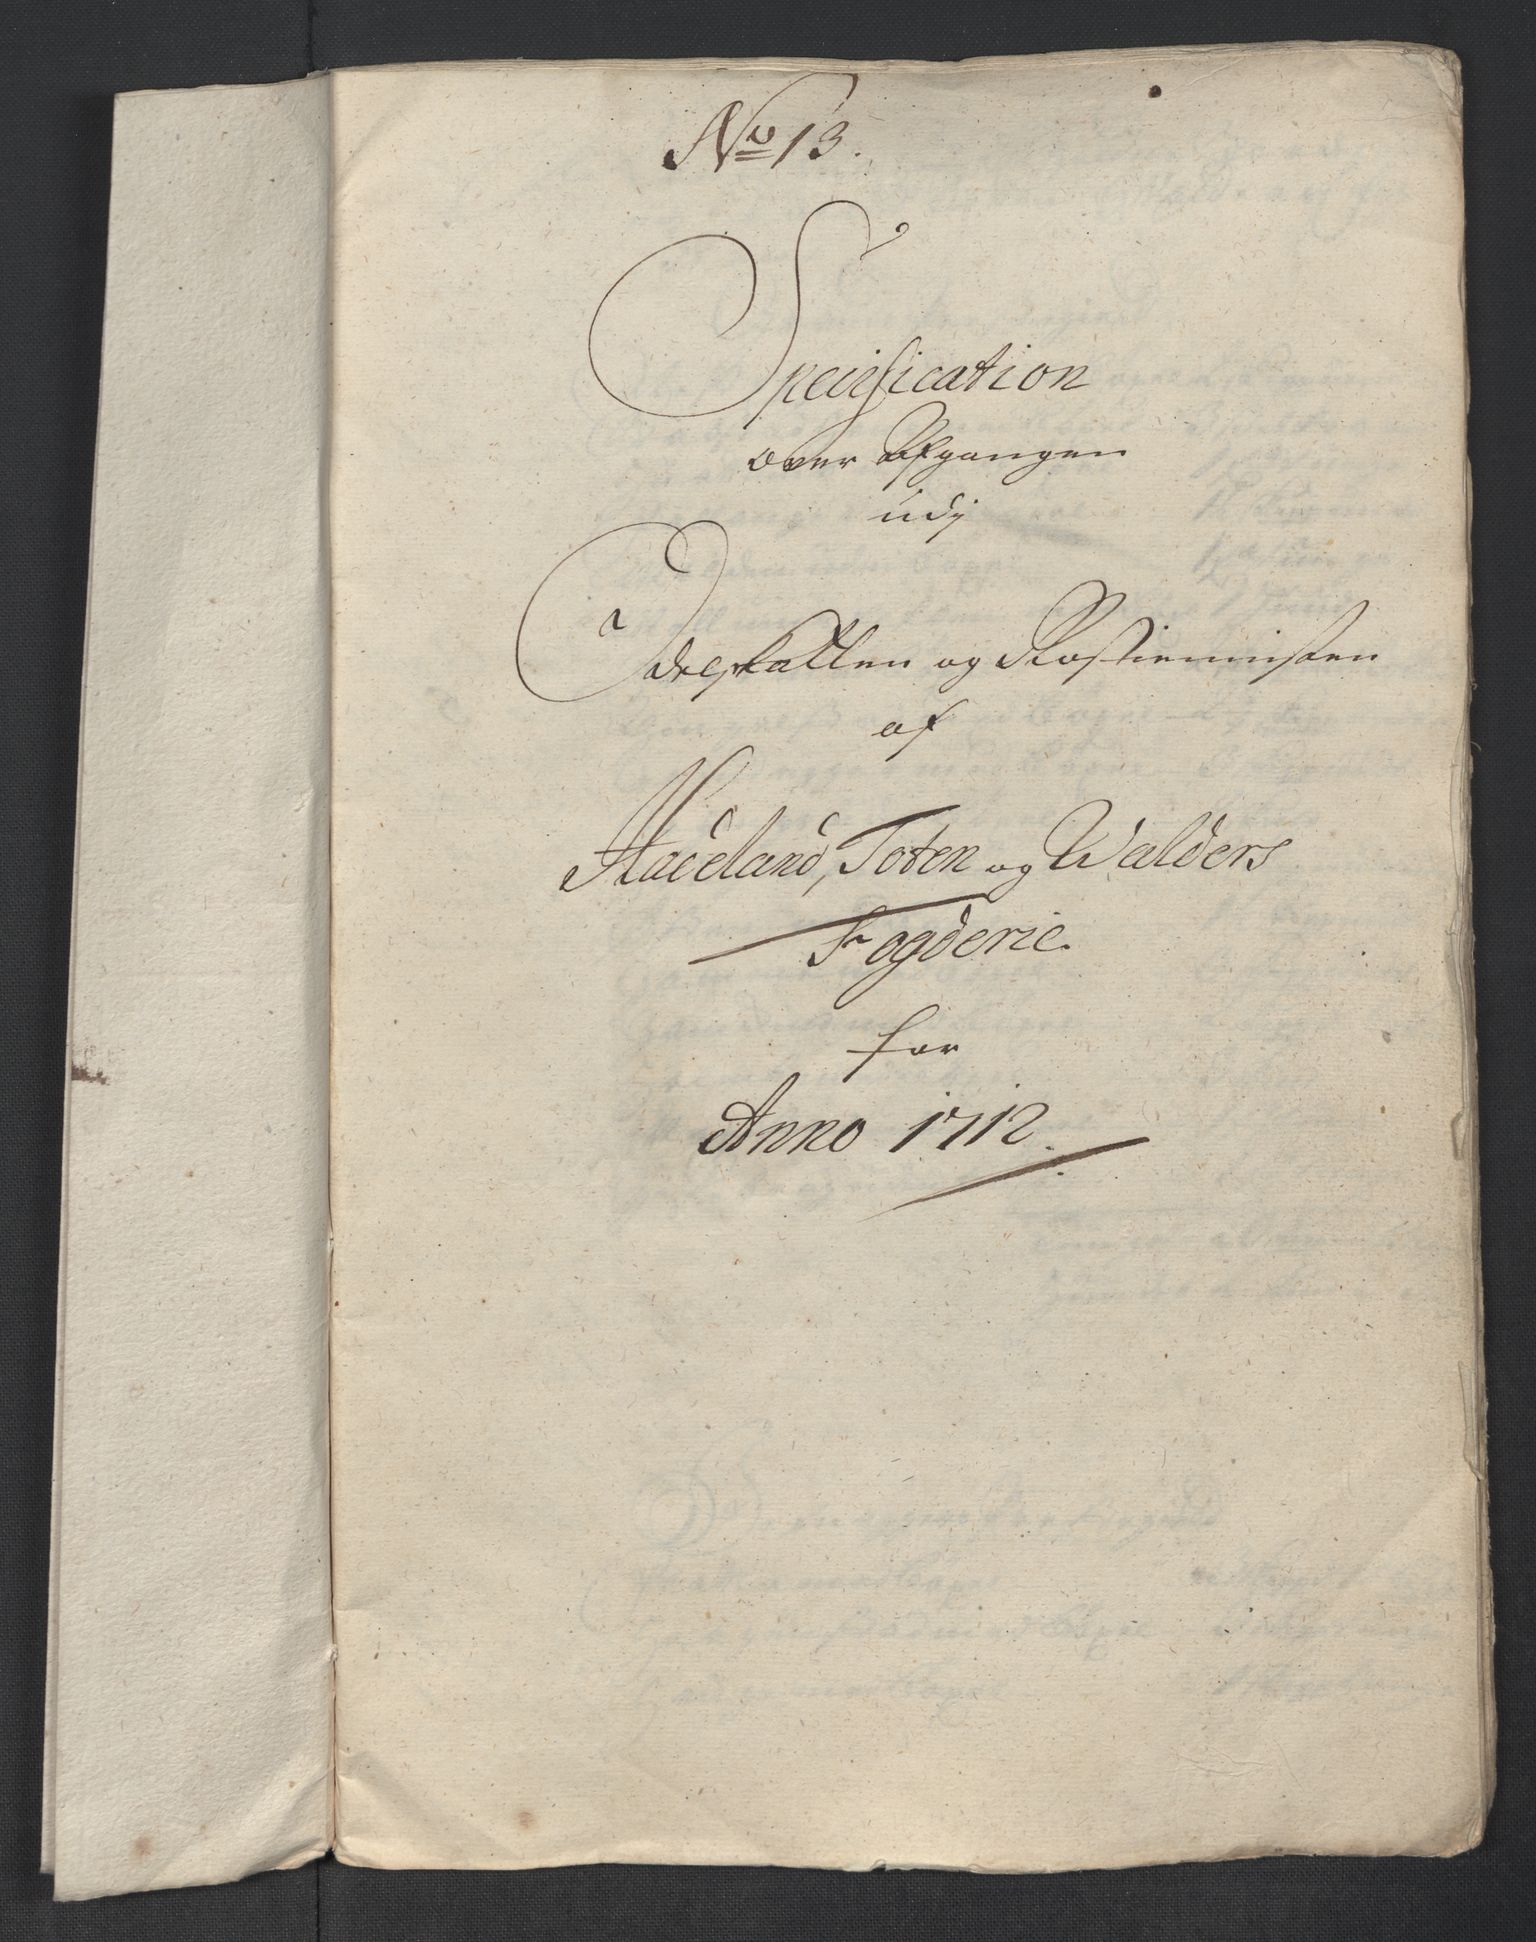 No 13.
Specification
over Afgangen
udj
Odelskatten og Rostiennisten
af
Hadeland, Toten og Walders
Fogderie
for
Anno 1712.